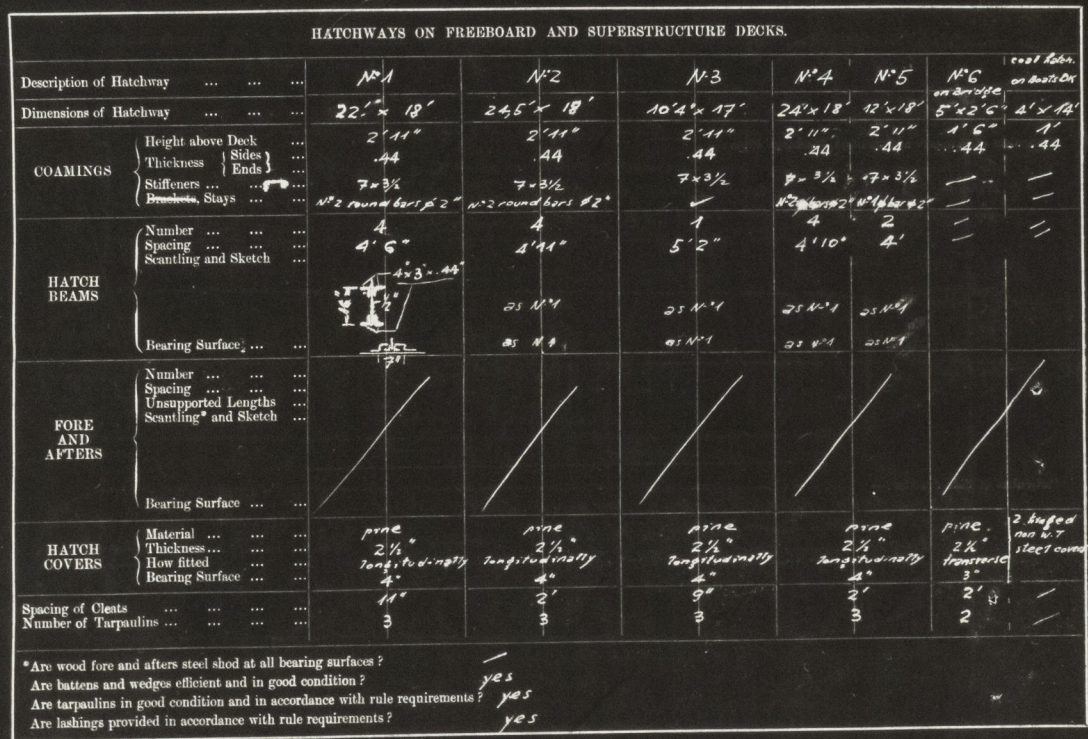 HATCHWAYS ON FREEBOARD AND SUPERSTRUCTURE DECKS.
Description of Hatchway ... ... ... Nº1 Nº2 Nº3 Nº4 Nº5 Nº6 on Bridge coal hatch. on Boats DK
Dimensions of Hatchway ... ... ... 22' x 18' 24,5' x 18' 10'4" x 17' 24' x 18' 12' x 18' 5' x 2'6" 4' x 14'
COAMINGS
Height above Deck ... 2'11" 2'11" 2'11" 2'11" 2'11" 1'6" 1'
Thickness { Sides Ends } ... .44 .44 .44 .44 .44 .44 .44
Stiffeners ... ... ... 7 x 3½ 7 x 3½ 7 x 3½ 7 x 3½ 7 x 3½ — —
Brackets, Stays ... ... Nº2 round bars ø 2" Nº2 round bars ø 2" ✓ — —
HATCH BEAMS
Number ... ... ... ... 4 4 1 4 2 — —
Spacing ... ... ... 4'6" 4'11" 5'2" 4'10" 4' — —
Scantling and Sketch ...
4" x 3" x .44"
½"
as Nº1 as Nº1 as Nº1 as Nº1
Bearing Surface ... ... 7" as Nº1 as Nº1 as Nº1 as Nº1
FORE AND AFTERS
Number ... ... ... ...
Spacing ... ... ... ...
Unsupported Lengths ...
Scantling* and Sketch ...
Bearing Surface ... ...
HATCH COVERS
Material ... ... ... pine pine pine pine pine. 2 hinged non W.T steel covers
Thickness... ... ... 2½" 2½" 2½" 2½" 2½"
How fitted ... ... longitudinally longitudinally longitudinally longitudinally transverse
Bearing Surface ... ... 4" 4" 4" 4" 3"
Spacing of Cleats ... ... ... ... 11" 2' 9" 2' 2' —
Number of Tarpaulins ... ... ... ... 3 3 3 3 2 —
*Are wood fore and afters steel shod at all bearing surfaces ? —
Are battens and wedges efficient and in good condition ? yes
Are tarpaulins in good condition and in accordance with rule requirements ? yes
Are lashings provided in accordance with rule requirements ? yes